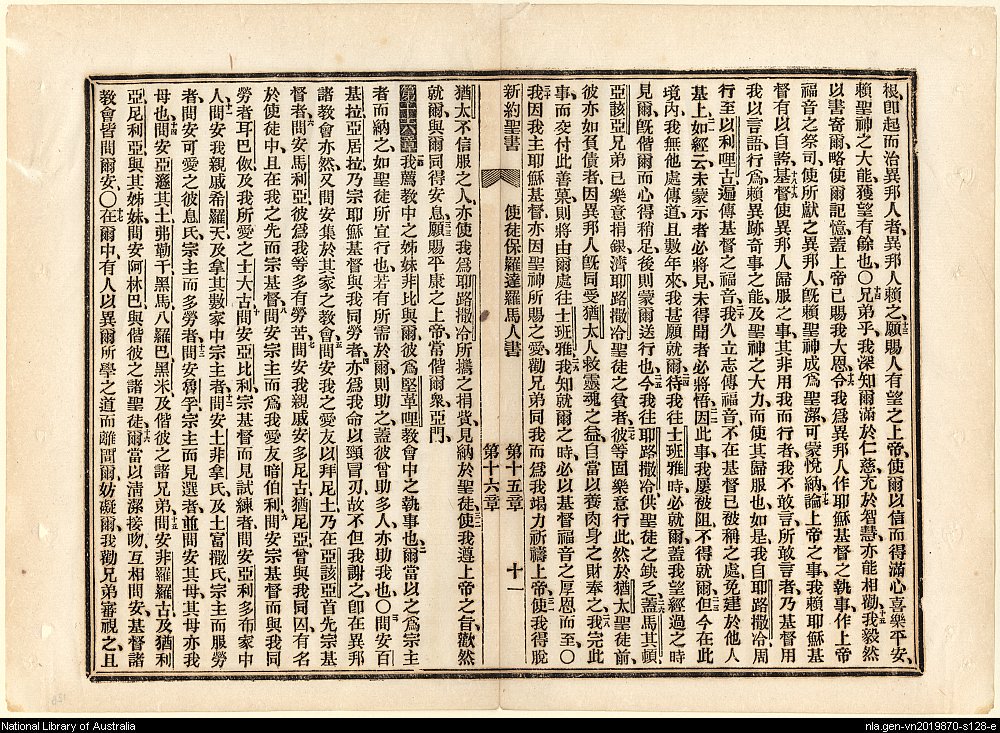 根卽起而治異邦人者異邦人賴之願賜人有望之上帝使爾以信而得滿心喜樂平安
賴聖神之大能獲望有餘也〇兄弟乎我深知爾滿於仁慈充於智慧亦能相勸我毅然
以書寄爾略使爾記憶蓋上帝已賜我大恩令我爲異邦人作耶穌基督之執事作上帝
福音之祭司使所獻之異邦人旣賴聖神成爲聖潔可蒙悅納論上帝之事我賴耶穌基
督有以自誇基督使異邦人歸服之事其非用我而行者我不敢言所敢言者乃基督用
我以言語行爲賴異跡奇事之能及聖神之大力而使其歸服也如是我自耶路撒冷周
行至以利哩古遍傳基督之福音我久立志傳福音不在基督已被稱之處免建於他人
基上如經云未蒙示者必將見未得聞者必將悟因此事我屢被阻不得就爾但今在此
境內我無他處傳道且數年來我甚願就爾待我往士班雅時必就爾蓋我望經過之時
見爾旣偕爾而心得稍足後則蒙爾送行也今我往耶路撒冷供聖徒之缺乏蓋馬其頓
亞該亞兄弟已樂意捐銀濟耶路撒冷聖徒之貧者彼等固樂意行此然於猶太聖徒前
彼亦如負債者因異邦人旣同受猶太人救靈魂之益自當以養肉身之財奉之我完此
事而交付此善菓則將由爾處往士班雅我知就爾之時必以基督福音之厚恩而至〇
我因我主耶穌基督亦因聖神所賜之愛勸兄弟同我而爲我竭力祈禱上帝使我得脫
新約聖書 使徒保羅達羅馬人書 第十五章 第十六章 十一
猶太不信服之人亦使我爲耶路撒冷所攜之捐貲見納於聖徒使我遵上帝之旨歡然
就爾與爾同得安息願賜平康之上帝常偕爾衆亞門
第十六章我薦教中之姊妹非比與爾彼爲堅革哩教會中之執事也爾當以之爲宗主
者而納之如聖徒所宜行也若有所需於爾則助之蓋彼曾助多人亦助我也〇問安百
基拉亞居拉乃宗耶穌基督與我同勞者亦爲我命以頸冒刃故不但我謝之卽在異邦
諸教會亦然又問安集於其家之教會問安我之愛友以拜尼土乃在亞該亞首先宗基
督者問安馬利亞彼爲我等多有勞苦問安我親戚安多尼古猶尼亞曾與我同囚有名
於使徒中且在我之先而宗基督問安宗主而爲我愛友暗伯利問安宗基督而與我同
勞者耳巴㑥及我所愛之士大古問安亞比利宗基督而見試練者問安亞利多布家中
人問安我親戚希羅天及拿其數家中宗主者問安土非拿氏及土富撒氏宗主而服勞
者問安可愛之彼息氏宗主而多勞者問安魯孚宗主而見選者並問安其母其母亦我
母也問安亞遜其土弗勒干黑馬八羅巴黑米及偕彼之諸兄弟問安非羅羅古及猶利
亞尼利亞與其姊妹問安阿林巴與偕彼之諸聖徒爾當以清潔接吻互相問安基督諸
教會皆問爾安〇在爾中有人以異爾所學之道而離間爾妨礙爾我勸兄弟審視之且
National Library of Australia
nla.gen-vn2019870-s128-e